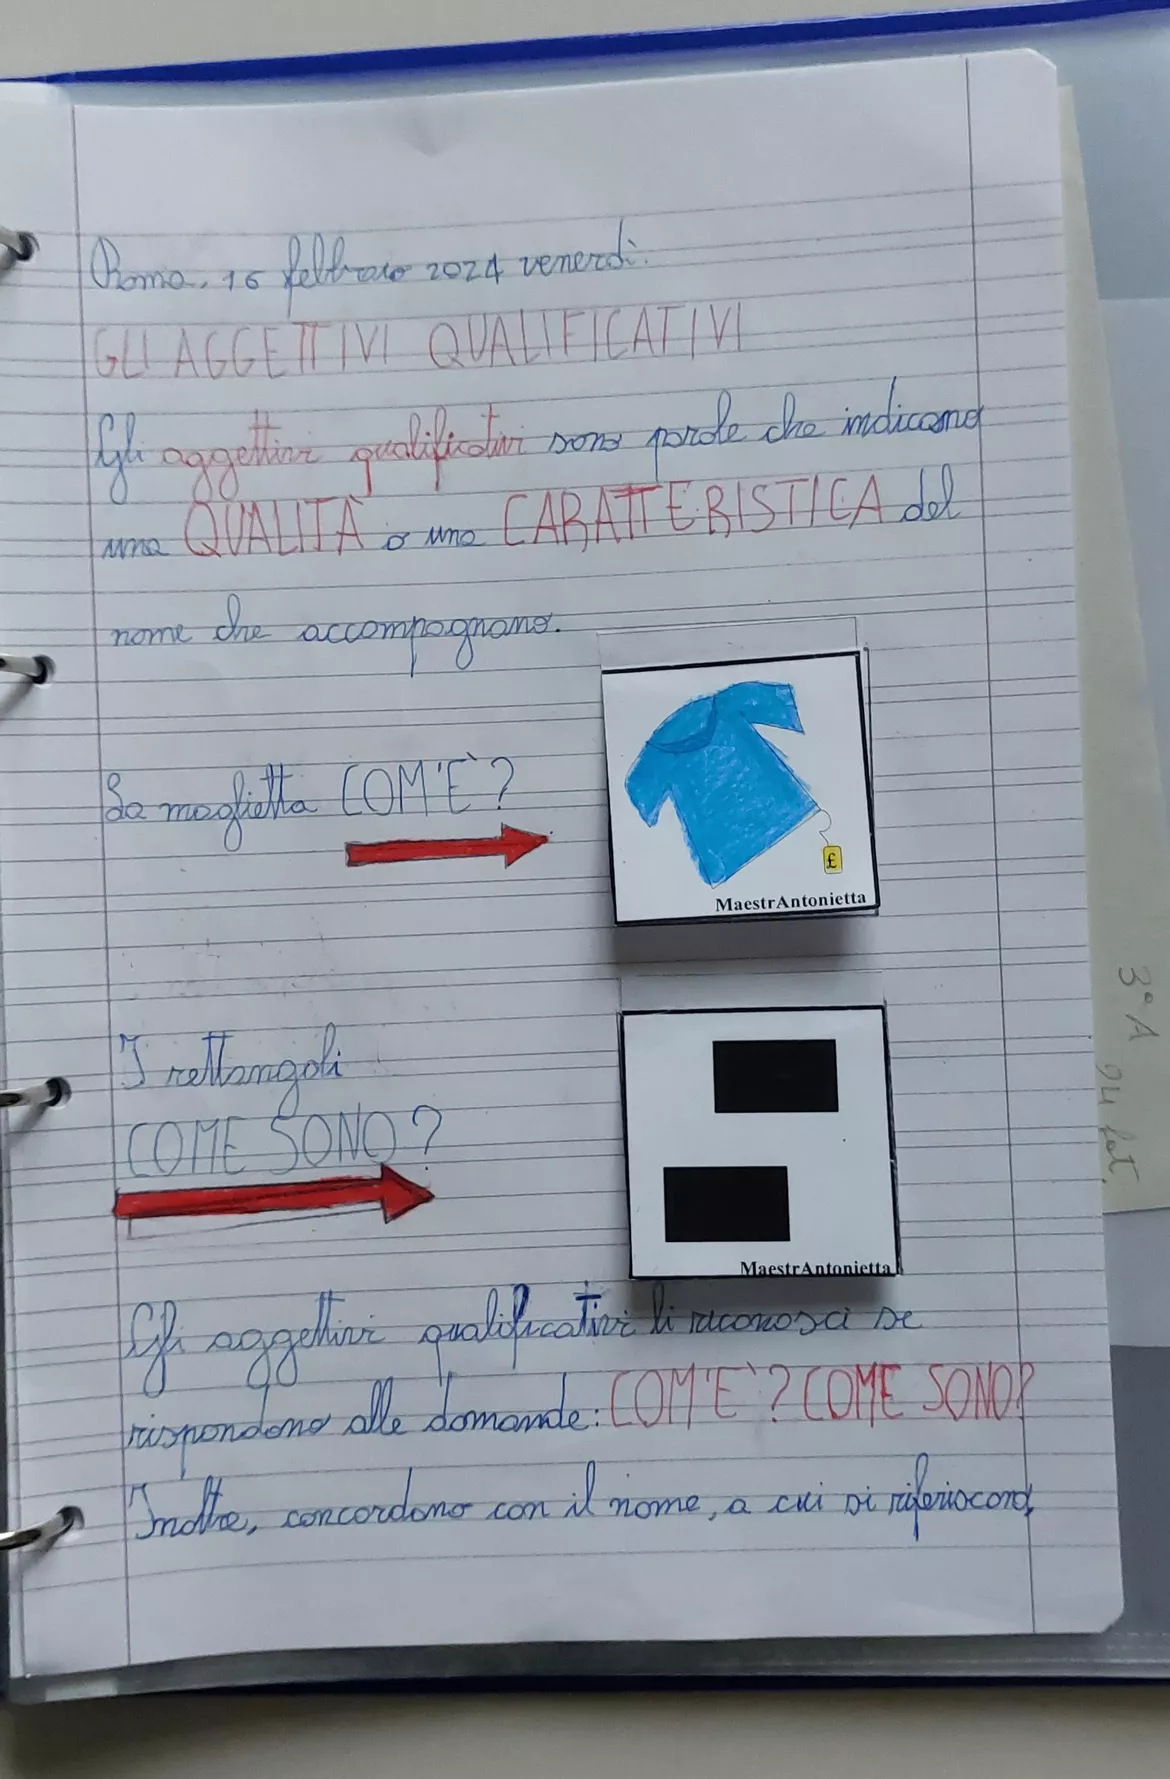 Roma, 16 febbraio 2024 venerdì.
GLI AGGETTIVI QUALIFICATIVI
Gli aggettivi qualificativi sono parole che indicano
una QUALITÀ o una CARATTERISTICA del
nome che accompagnano.
La maglietta COM'È?
£
MaestrAntonietta
I rettangoli
COME SONO?
MaestrAntonietta
Gli aggettivi qualificativi li riconosci se
rispondono alle domande: COM'È? COME SONO?
Inoltre, concordano con il nome, a cui si riferiscono,
3°A